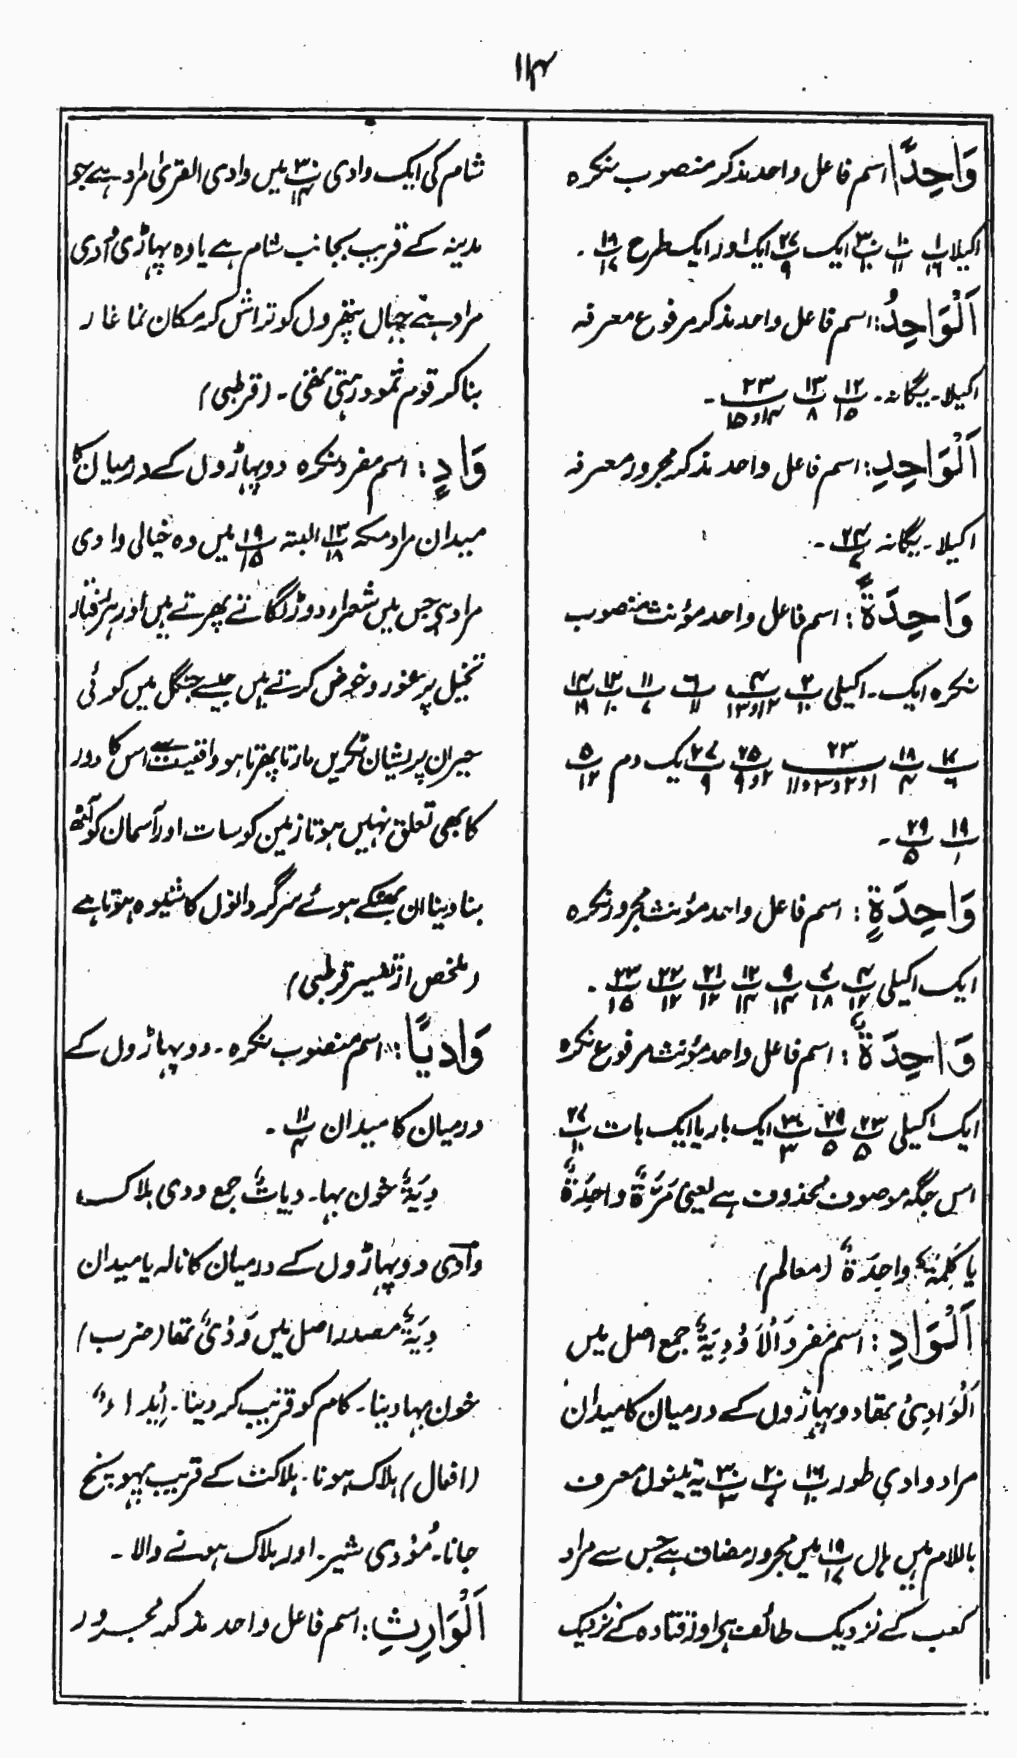 ۱۱۴
وَاحِدًا اسم فاعل واحد مذکر منصوب نکرہ
اکیلا پ ۱/۱۶ پ ۱۰/۱۱ پ ۳۰/۱۰ ایک پ ۲۷/۹ ایک اور ایک طرح پ ۱۸/۱۷ ۔
اَلْوَاحِدُ: اسم فاعل واحد مذکر مرفوع معرفہ
اکیلا۔ یگانہ۔ ۱۲/۱۵ ۱۳/۸ ۲۳/۱۴و۱۵ ۔
اَلْوَاحِدِ: اسم فاعل واحد مذکر مجرور معرفہ
اکیلا۔ یگانہ ۲۴/۷ ۔
وَاحِدَةً: اسم فاعل واحد مؤنث منصوب
نکرہ ایک۔ اکیلی ۲/۱۰ ۴/۱۲و۱۳ ۶/۱۱ ۱۱/۷ ۱۲/۱۰ ۱۴/۱۹
۱۷/۶ ۱۸/۴ ۲۳/۱و۲و۳و۱۱ ۲۵/۲و۹ ۲۷/۹ یک دم ۵/۱۲
۱۹/۱ ۲۹/۵ ۔
وَاحِدَةٍ: اسم فاعل واحد مؤنث مجرور نکرہ
ایک اکیلی ۴/۱۲ ۷/۱۸ ۹/۱۴ ۱۲/۱۴ ۲۱/۱۲ ۲۲/۱۲ ۲۳/۱۵ ۔
وَاحِدَةٌ: اسم فاعل واحد مؤنث مرفوع نکرہ
ایک اکیلی ۲۳/۵ ۲۹/۵ ۳۰/۳ ایک بار یا ایک بات ۲۷/۱۰
اس جگہ موصوف محذوف ہے یعنی مَرَّةٌ وَاحِدَةٌ
یا كَلِمَةٌ وَاحِدَةٌ (معالم)
اَلْوَادِ: اسم مفرد اَلْاَوْدِيَةُ جمع اصل میں
اَلْوَادِیْ تھا دو پہاڑوں کے درمیان کا میدان
مراد وادیِ طور ۱۶/۱۰ ۲۰/۷ ۳۰/۳ یہ تینوں معرف
باللام ہیں ہاں ۱۹/۱۷ میں مجرور مضاف ہے جس سے مراد
کعب کے نزدیک طائف ہے اور قتادہ کے نزدیک
شام کی ایک وادی ۳۰/۱۴ میں وادی القریٰ مراد ہے جو
مدینہ کے قریب بجانب شام ہے یا وہ پہاڑی وادی
مراد ہے جہاں پتھروں کو تراش کر مکان نما غار
بنا کر قوم ثمود رہتی تھی۔ (قرطبی)
وَادٍ: اسم مفرد نکرہ دو پہاڑوں کے درمیان کا
میدان مراد مکہ ۱۳/۱۸ البتہ ۱۹/۱۵ میں وہ خیالی وادی
مراد ہے جس میں شعراء دوڑ لگاتے پھرتے ہیں اور ہر
تخیل پر غور و خوض کرتے ہیں جیسے جنگل میں کوئی
حیران پریشان ٹکریں مارتا پھرتا ہو واقفیت سے اس کا دور
کا بھی تعلق نہیں ہوتا زمین کو سات اور آسمان کو آٹھ
بنا دینا ان بھٹکے ہوئے سرگردانوں کا شیوہ ہوتا ہے
(ملخص از تفسیر قرطبی)
وَادِيًا: اسم منصوب نکرہ۔ دو پہاڑوں کے
درمیان کا میدان ۱۱/۴ ۔
دِيَةٌ خون بہا۔ دیاتٌ جمع وَدی ہلاکت
وادی دو پہاڑوں کے درمیان کا نالہ یا میدان
دِيَةٌ مصدر اصل میں وَدْیٌ تھا (ضرب)
خون بہا دینا۔ کام کو قریب کر دینا۔ اِیْدَاءٌ
(افعال) ہلاک ہونا۔ ہلاکت کے قریب پہونچ
جانا۔ مُوْدی شیر۔ اور ہلاک ہونے والا۔
اَلْوَارِثِ: اسم فاعل واحد مذکر مجرور